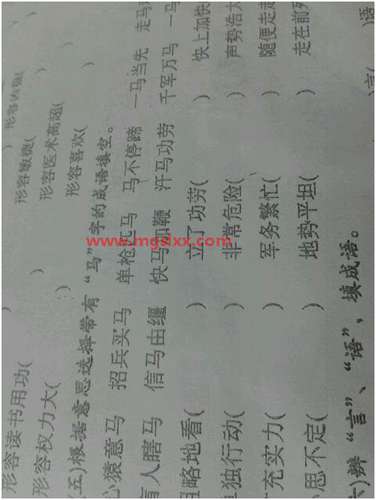 形容敏捷(
形容读书用功( ) 形容医术高超(
形容权力大( ) 形容喜欢(
(五)根据意思选择带有“马”字的成语填空。
心猿意马 招兵买马 单枪匹马 马不停蹄 一马当先 走马
盲人瞎马 信马由缰 快马加鞭 汗马功劳 千军万马 一马
粗略地看( ) 立了功劳( ) 快上加快
独行动( ) 非常危险( ) 声势浩大
充实力( ) 军务繁忙( ) 随便走走
思不定( ) 地势平坦( ) 走在前列
六)辨“言”、“语”，填成语。
言( )语